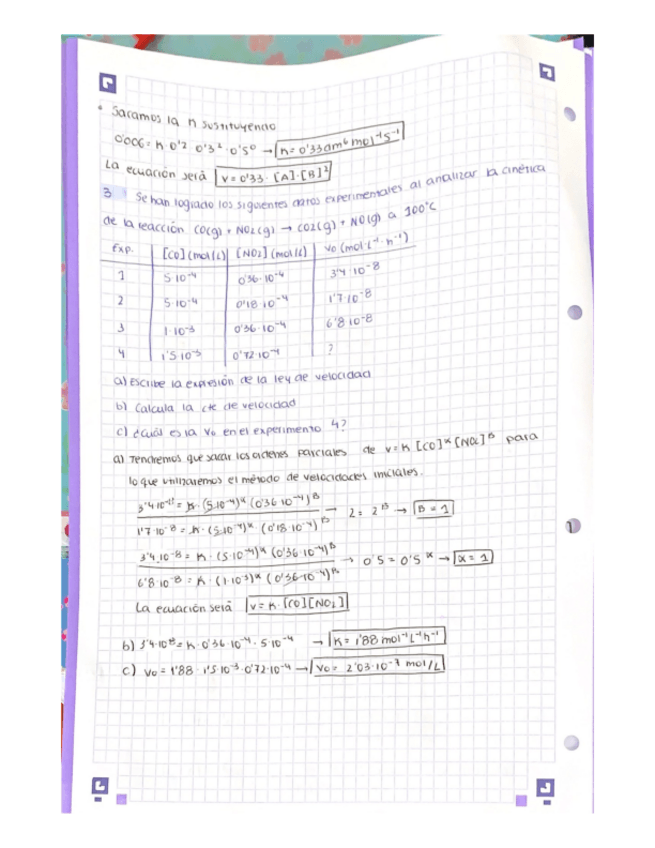 • Sacamos la K sustituyendo
0'006 = K · 0'2 · 0'3² · 0'5⁰ → K = 0'33 dm⁶ mol⁻¹ s⁻¹
La ecuación será v = 0'33 · [A]·[B]²
3 Se han logrado los siguientes datos experimentales al analizar la cinética
de la reacción CO(g) + NO2(g) → CO2(g) + NO(g) a 300°C
Exp. [CO] (mol/L) [NO2] (mol/L) V0 (mol·L⁻¹·h⁻¹)
1 5·10⁻⁴ 0'36·10⁻⁴ 3'4·10⁻⁸
2 5·10⁻⁴ 0'18·10⁻⁴ 1'7·10⁻⁸
3 1·10⁻³ 0'36·10⁻⁴ 6'8·10⁻⁸
4 1'5·10⁻³ 0'72·10⁻⁴ ?
a) Escribe la expresión de la ley de velocidad
b) Calcula la cte de velocidad
c) ¿Cuál es la V0 en el experimento 4?
a) Tendremos que sacar los ordenes parciales de v = K [CO]^α [NO2]^β para
lo que utilizaremos el método de velocidades iniciales.
3'4·10⁻⁸ = K · (5·10⁻⁴)^α (0'36·10⁻⁴)^β
→ 2 = 2^β → β = 1
1'7·10⁻⁸ = K · (5·10⁻⁴)^α (0'18·10⁻⁴)^β
3'4·10⁻⁸ = K · (5·10⁻⁴)^α (0'36·10⁻⁴)^β
→ 0'5 = 0'5^α → α = 1
6'8·10⁻⁸ = K · (1·10⁻³)^α (0'36·10⁻⁴)^β
La ecuación será v = K · [CO][NO2]
b) 3'4·10⁻⁸ = K · 0'36·10⁻⁴ · 5·10⁻⁴ → K = 1'88 mol⁻¹ L⁻¹ h⁻¹
c) V0 = 1'88 · 1'5·10⁻³ · 0'72·10⁻⁴ → V0 = 2'03·10⁻⁷ mol/L